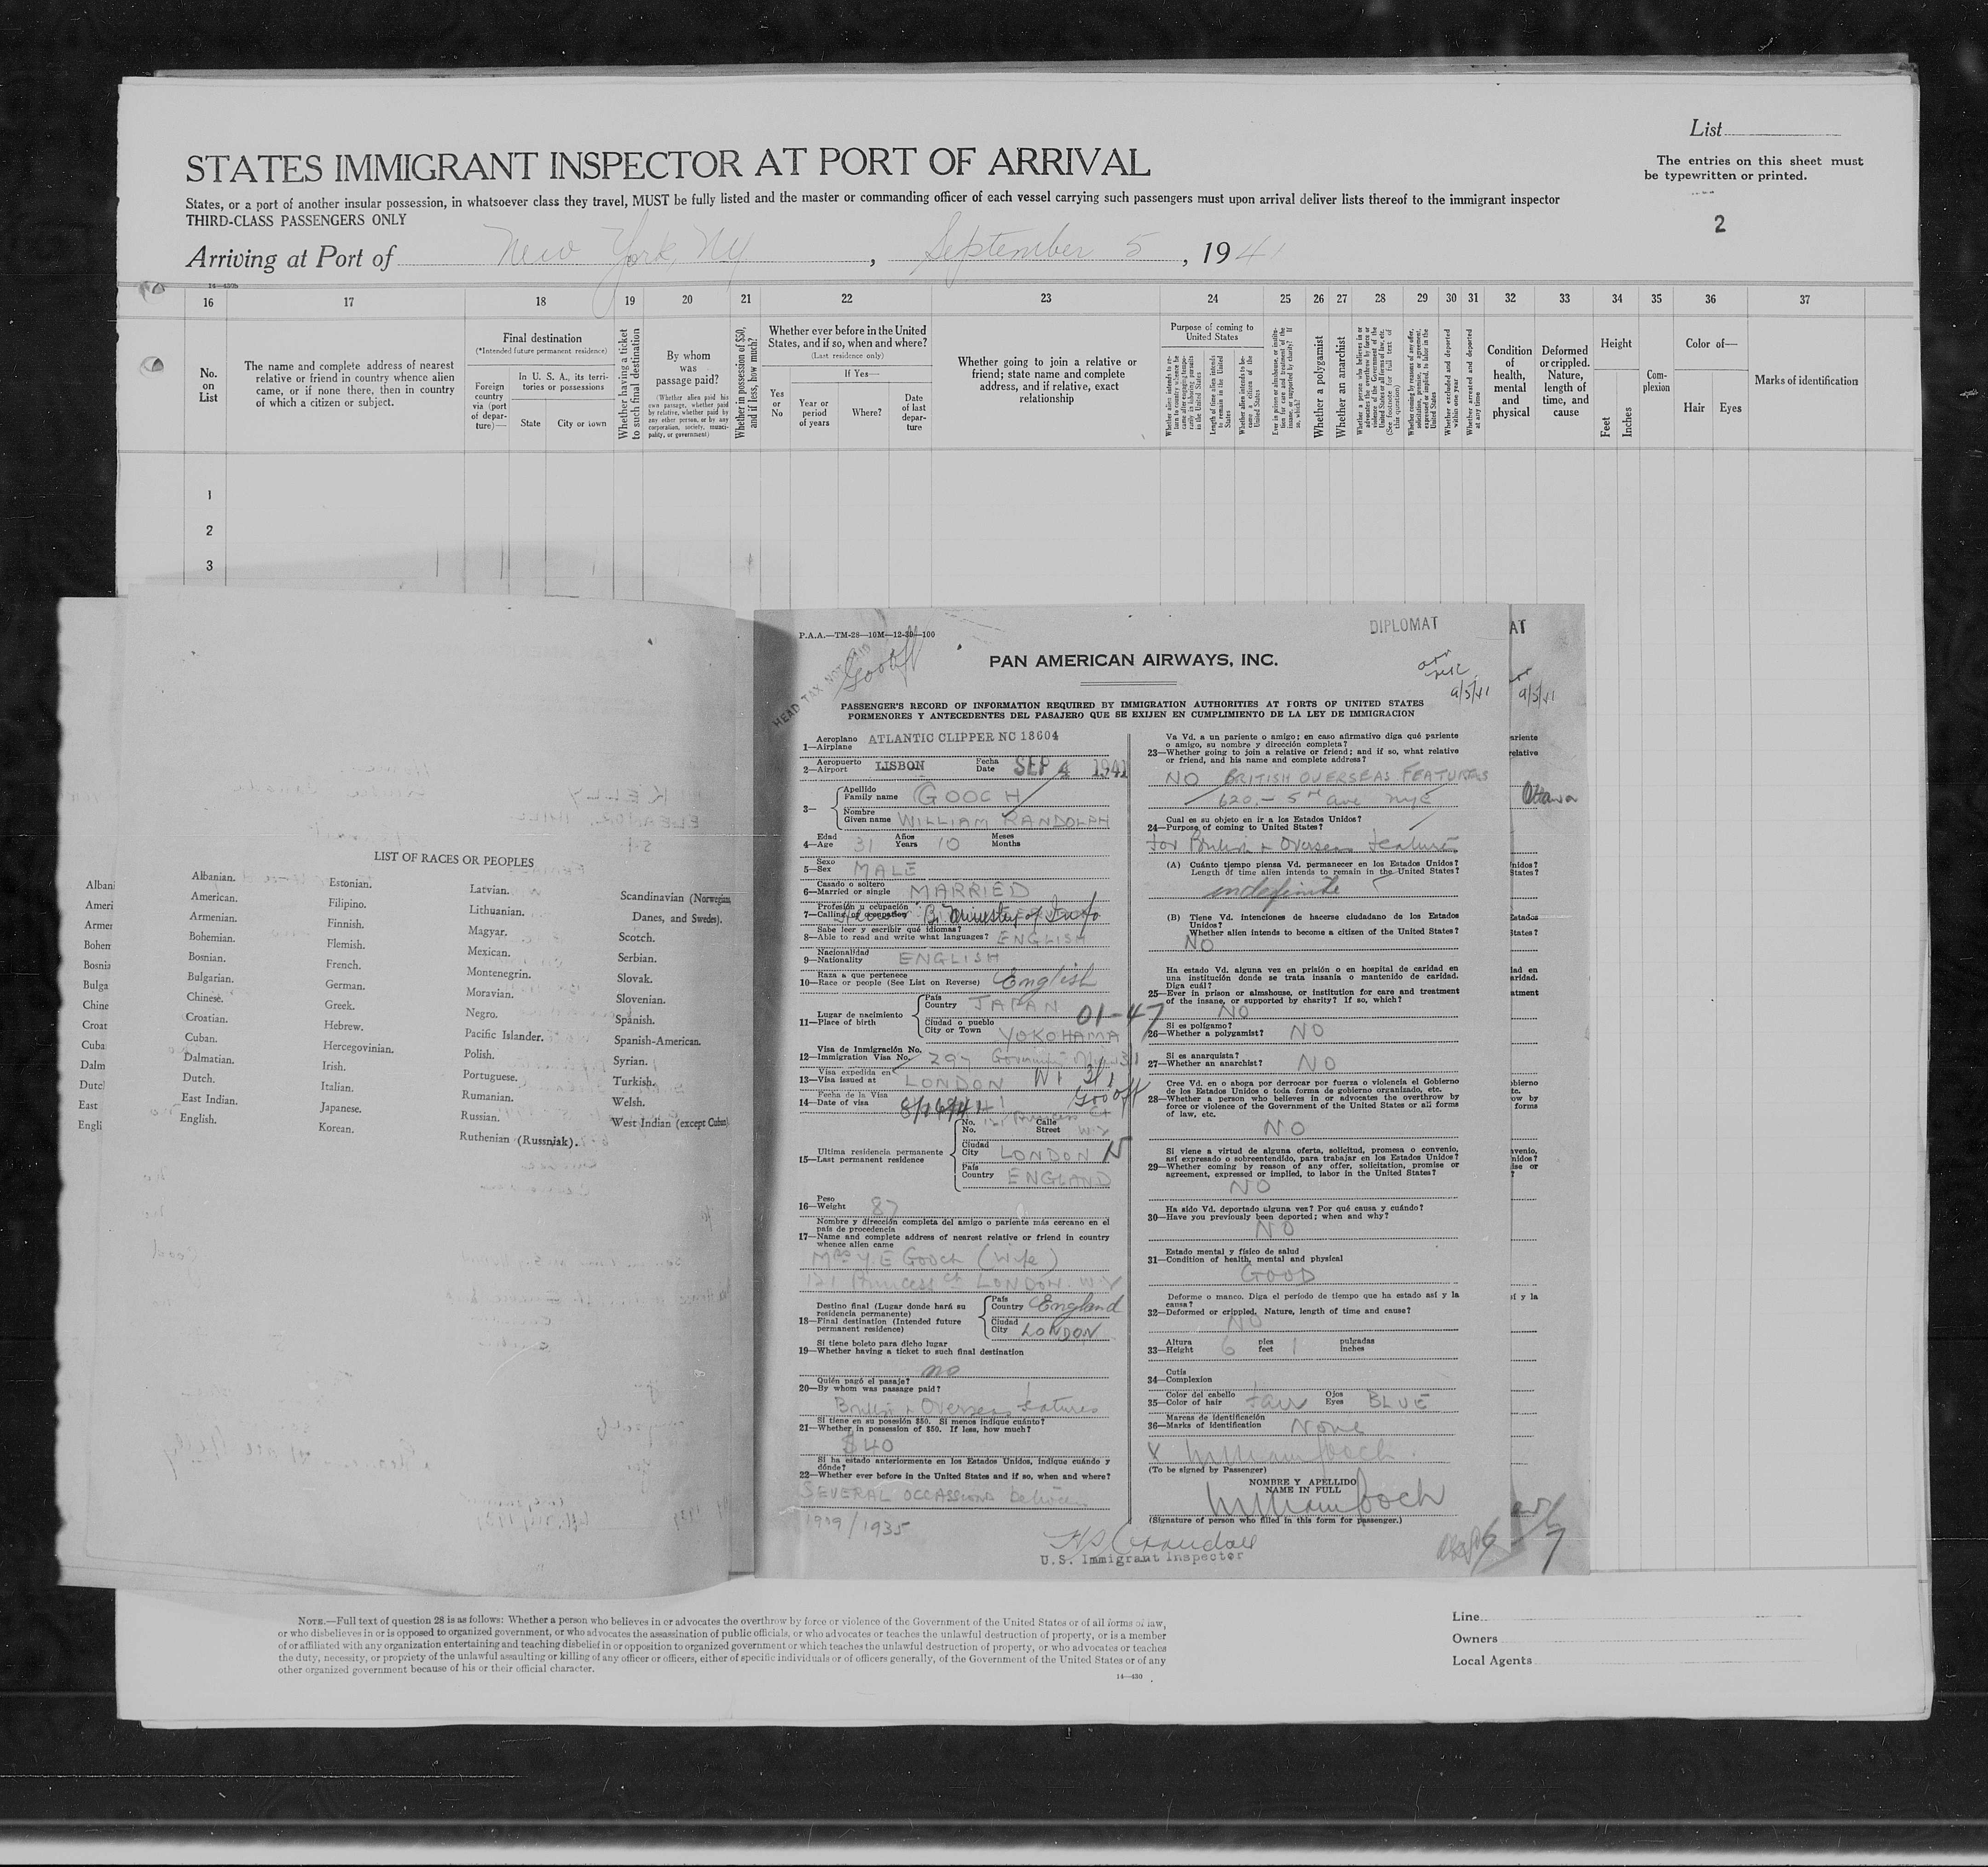 List
The entries on this sheet must
be typewritten or printed.
2
STATES IMMIGRANT INSPECTOR AT PORT OF ARRIVAL
States, or a port of another insular possession, in whatsoever class they travel, MUST be fully listed and the master or commanding officer of each vessel carrying such passengers must upon arrival deliver lists thereof to the immigrant inspector
THIRD-CLASS PASSENGERS ONLY
Arriving at Port of New York, NY, September 5, 1941
16 17 18 19 20 21 22 23 24 25 26 27 28 29 30 31 32 33 34 35 36 37
No. on List
The name and complete address of nearest
relative or friend in country whence alien
came, or if none there, then in country
of which a citizen or subject.
Final destination
(*Intended future permanent residence)
Foreign country via (port of depar-ture)—
In U. S. A., its terri-
tories or possessions
State
City or town
Whether having a ticket
to such final destination
By whom
was
passage paid?
(Whether alien paid his
own passage, whether paid
by relative, whether paid by
any other person, or by any
corporation, society, munici-
pality, or government)
Whether in possession of $50,
and if less, how much?
Whether ever before in the United
States, and if so, when and where?
(Last residence only)
Yes or No
If Yes—
Year or period of years
Where?
Date of last depar-ture
Whether going to join a relative or
friend; state name and complete
address, and if relative, exact
relationship
Purpose of coming to
United States
Length of time alien intends
to remain in the United
States
Whether alien intends to be-
come a citizen of the
United States
Whether a polygamist
Whether an anarchist
Whether excluded and deported
within one year
Whether arrested and deported
at any time
Condition
of
health,
mental
and
physical
Deformed
or crippled.
Nature,
length of
time, and
cause
Height
Feet
Inches
Com-
plexion
Color of—
Hair
Eyes
Marks of identification
1
2
3
LIST OF RACES OR PEOPLES
Albanian.
American.
Armenian.
Bohemian.
Bosnian.
Bulgarian.
Chinese.
Croatian.
Cuban.
Dalmatian.
Dutch.
East Indian.
English.
Estonian.
Filipino.
Finnish.
Flemish.
French.
German.
Greek.
Hebrew.
Hercegovinian.
Irish.
Italian.
Japanese.
Korean.
Latvian.
Lithuanian.
Magyar.
Mexican.
Montenegrin.
Moravian.
Negro.
Pacific Islander.
Polish.
Portuguese.
Rumanian.
Russian.
Ruthenian (Russniak).
Scandinavian (Norwegian,
Danes, and Swedes).
Scotch.
Serbian.
Slovak.
Slovenian.
Spanish.
Spanish-American.
Syrian.
Turkish.
Welsh.
West Indian (except Cuban)
P.A.A.—TM-28—10M—12-39—100
DIPLOMAT
HEAD TAX NOT
Gov off
PAN AMERICAN AIRWAYS, INC.
9/5/41
PASSENGER'S RECORD OF INFORMATION REQUIRED BY IMMIGRATION AUTHORITIES AT PORTS OF UNITED STATES
PORMENORES Y ANTECEDENTES DEL PASAJERO QUE SE EXIJEN EN CUMPLIMIENTO DE LA LEY DE IMMIGRACION
Aeroplano
1—Airplane ATLANTIC CLIPPER NC 18604
Aeropuerto
2—Airport LISBON Fecha Date SEP 4 1941
3— Apellido
Family name GOOCH
Nombre
Given name WILLIAM RANDOLPH
Edad
4—Age 31 Años Years 10 Meses Months
Sexo
5—Sex MALE
Casado o soltero
6—Married or single MARRIED
Profesión u ocupación
7—Calling or occupation Br. Ministry of Info
Sabe leer y escribir qué idiomas?
8—Able to read and write what languages? ENGLISH
Nacionalidad
9—Nationality ENGLISH
Raza a que pertenece
10—Race or people (See List on Reverse) English
Lugar de nacimiento
11—Place of birth
País
Country JAPAN 01-47
Ciudad o pueblo
City or Town YOKOHAMA
Visa de Inmigración No.
12—Immigration Visa No. 297
Visa expedida en
13—Visa issued at LONDON
Fecha de la Visa
14—Date of visa 8/16/41 Gov off
Ultima residencia permanente
15—Last permanent residence
No.
No. 121 Calle Street Princess Ct W.2
Ciudad
City LONDON
País
Country ENGLAND
Peso
16—Weight 87
Nombre y dirección completa del amigo o pariente más cercano en el
país de procedencia
17—Name and complete address of nearest relative or friend in country
whence alien came
Mrs Y. E Gooch (wife)
121 Princess Ct LONDON. W.2
Destino final (Lugar donde hará su
residencia permanente)
18—Final destination (Intended future
permanent residence)
País
Country England
Ciudad
City LONDON
Si tiene boleto para dicho lugar
19—Whether having a ticket to such final destination
no
Quién pagó el pasaje?
20—By whom was passage paid?
British & Overseas features
Si tiene en su posesión $50. Si menos indique cuánto?
21—Whether in possession of $50. If less, how much?
$40
Si ha estado anteriormente en los Estados Unidos, indique cuándo y
dónde?
22—Whether ever before in the United States and if so, when and where?
SEVERAL OCCASSIONS between
1909/1935
Va Vd. a un pariente o amigo; en caso afirmativo diga qué pariente
o amigo, su nombre y dirección completa?
23—Whether going to join a relative or friend; and if so, what relative
or friend, and his name and complete address?
NO BRITISH OVERSEAS FEATURES
620 - 5th Ave NYC
Cual es su objeto en ir a los Estados Unidos?
24—Purpose of coming to United States?
for British & Overseas features
(A) Cuánto tiempo piensa Vd. permanecer en los Estados Unidos?
Length of time alien intends to remain in the United States?
indefinite
(B) Tiene Vd. intenciones de hacerse ciudadano de los Estados
Unidos?
Whether alien intends to become a citizen of the United States?
NO
Ha estado Vd. alguna vez en prisión o en hospital de caridad en
una institución donde se trata insania o mantenido de caridad.
Diga cuál?
25—Ever in prison or almshouse, or institution for care and treatment
of the insane, or supported by charity? If so, which?
NO
Si es polígamo?
26—Whether a polygamist? NO
Si es anarquista?
27—Whether an anarchist? NO
Cree Vd. en o aboga por derrocar por fuerza o violencia el Gobierno
de los Estados Unidos o toda forma de gobierno organizado, etc.
28—Whether a person who believes in or advocates the overthrow by
force or violence of the Government of the United States or all forms
of law, etc.
NO
Si viene a virtud de alguna oferta, solicitud, promesa o convenio,
así expresado o sobreentendido, para trabajar en los Estados Unidos?
29—Whether coming by reason of any offer, solicitation, promise or
agreement, expressed or implied, to labor in the United States?
NO
Ha sido Vd. deportado alguna vez? Por qué causa y cuándo?
30—Have you previously been deported; when and why?
NO
Estado mental y físico de salud
31—Condition of health, mental and physical
GOOD
Deforme o manco. Diga el período de tiempo que ha estado así y la
causa?
32—Deformed or crippled. Nature, length of time and cause?
NO
Altura
33—Height 6 pies feet 1 pulgadas inches
Cutis
34—Complexion
Color del cabello
35—Color of hair Fair Ojos Eyes BLUE
Marcas de identificación
36—Marks of identification None
X William Gooch
(To be signed by Passenger)
NOMBRE Y APELLIDO
NAME IN FULL
William Gooch
(Signature of person who filled in this form for passenger.)
HS Crandall
U.S. Immigrant Inspector
AT
9/5/41
Ottawa
NOTE.—Full text of question 28 is as follows: Whether a person who believes in or advocates the overthrow by force or violence of the Government of the United States or of all forms of law,
or who disbelieves in or is opposed to organized government, or who advocates the assassination of public officials, or who advocates or teaches the unlawful destruction of property, or is a member
of or affiliated with any organization entertaining and teaching disbelief in or opposition to organized government or which teaches the unlawful destruction of property, or who advocates or teaches
the duty, necessity, or propriety of the unlawful assaulting or killing of any officer or officers, either of specific individuals or of officers generally, of the Government of the United States or of any
other organized government because of his or their official character.
14—430
Line
Owners
Local Agents